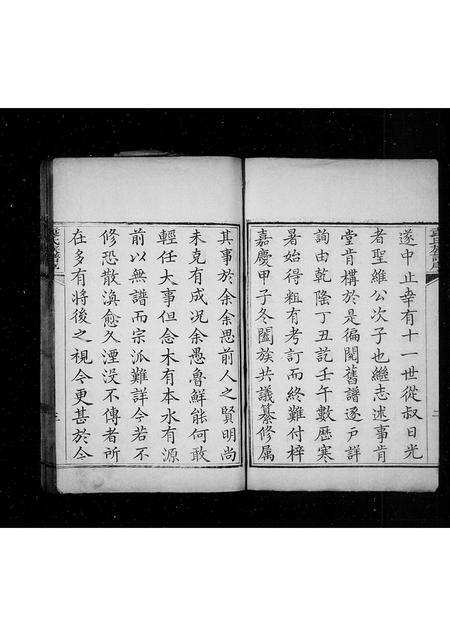 遂中止幸有十一世從叔日光
者聖維公次子也繼志述事肯
堂肯構於是徧閱舊譜逐戶詳
詢由乾隆丁丑訖壬午數歷寒
暑始得粗有考訂而終難付梓
嘉慶甲子冬闔族共議纂修屬
二
其事於余余思前人之賢明尚
未克有成况余愚魯鮮能何敢
輕任大事但念木有本水有源
前以無譜而宗派難詳今若不
修恐散渙愈久湮没不傳者所
在多有將後之視今更甚於今
三